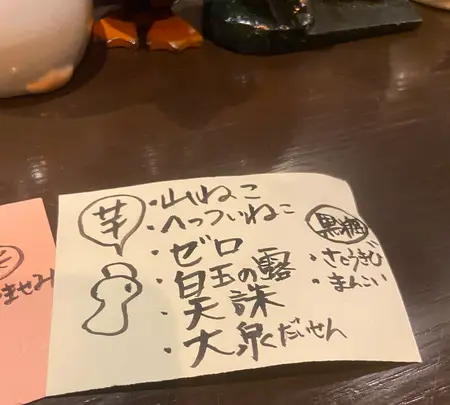 芋
・山ねこ
・へっついねこ
・ゼロ
・白玉の露
・天誅
・大泉くだいせん
黒糖
・さとうきび
・まんこい
ませみ